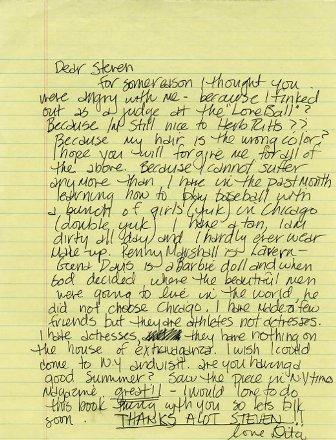 Dear Steven
for some reason I thought you
were angry with me - because I finked
out as a judge at the "Love Ball"?
Because I'm still nice to Herb Ritts??
Because my hair is the wrong color?
I hope you will forgive me for all of
the above. Because I cannot suffer
any more than I have in the past month
learning how to play baseball with
a bunch of girls (yuk) in Chicago
(double yuk) I have a tan, I am
dirty all day and I hardly ever wear
make-up. Penny Marshall is Lavern-
Geena Davis is a Barbie doll and when
God decided where the beautiful men
were going to live in the world, he
did not choose Chicago. I have made a few
friends but they are athletes not actresses.
I hate actresses they have nothing on
the house of extravaganza. I wish I could
come to N.Y. and visit. are you having a
good Summer? Saw the piece in N.Y. times
Magazine great!! I would love to do
this book with you so lets talk
soon. THANKS A LOT STEVEN!!
love Dita